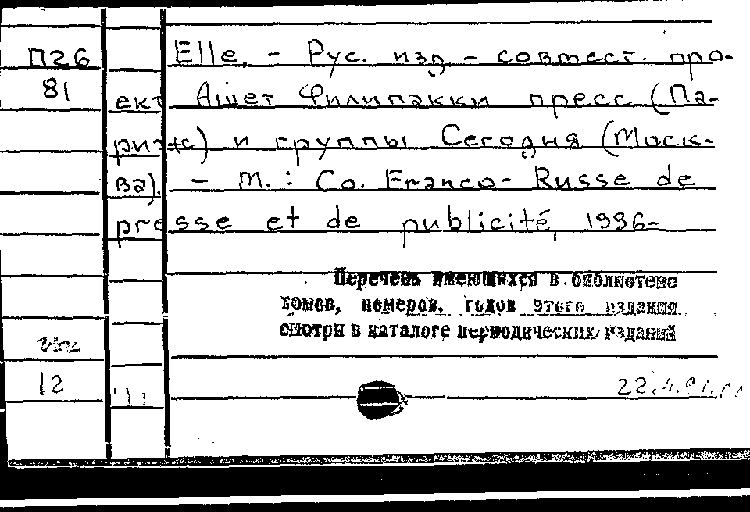 П26 Elle. – Рус. изд. – совмест. про-
81 ект Ашет Филипакки пресс (Па-
риж) и группы Сегодня (Моск-
ва). – М.: Co. Franco-Russe de
presse et de publicité, 1996-
Перечень имеющихся в библиотеке
томов, номеров, годов этого издания
смотри в каталоге периодических изданий
12